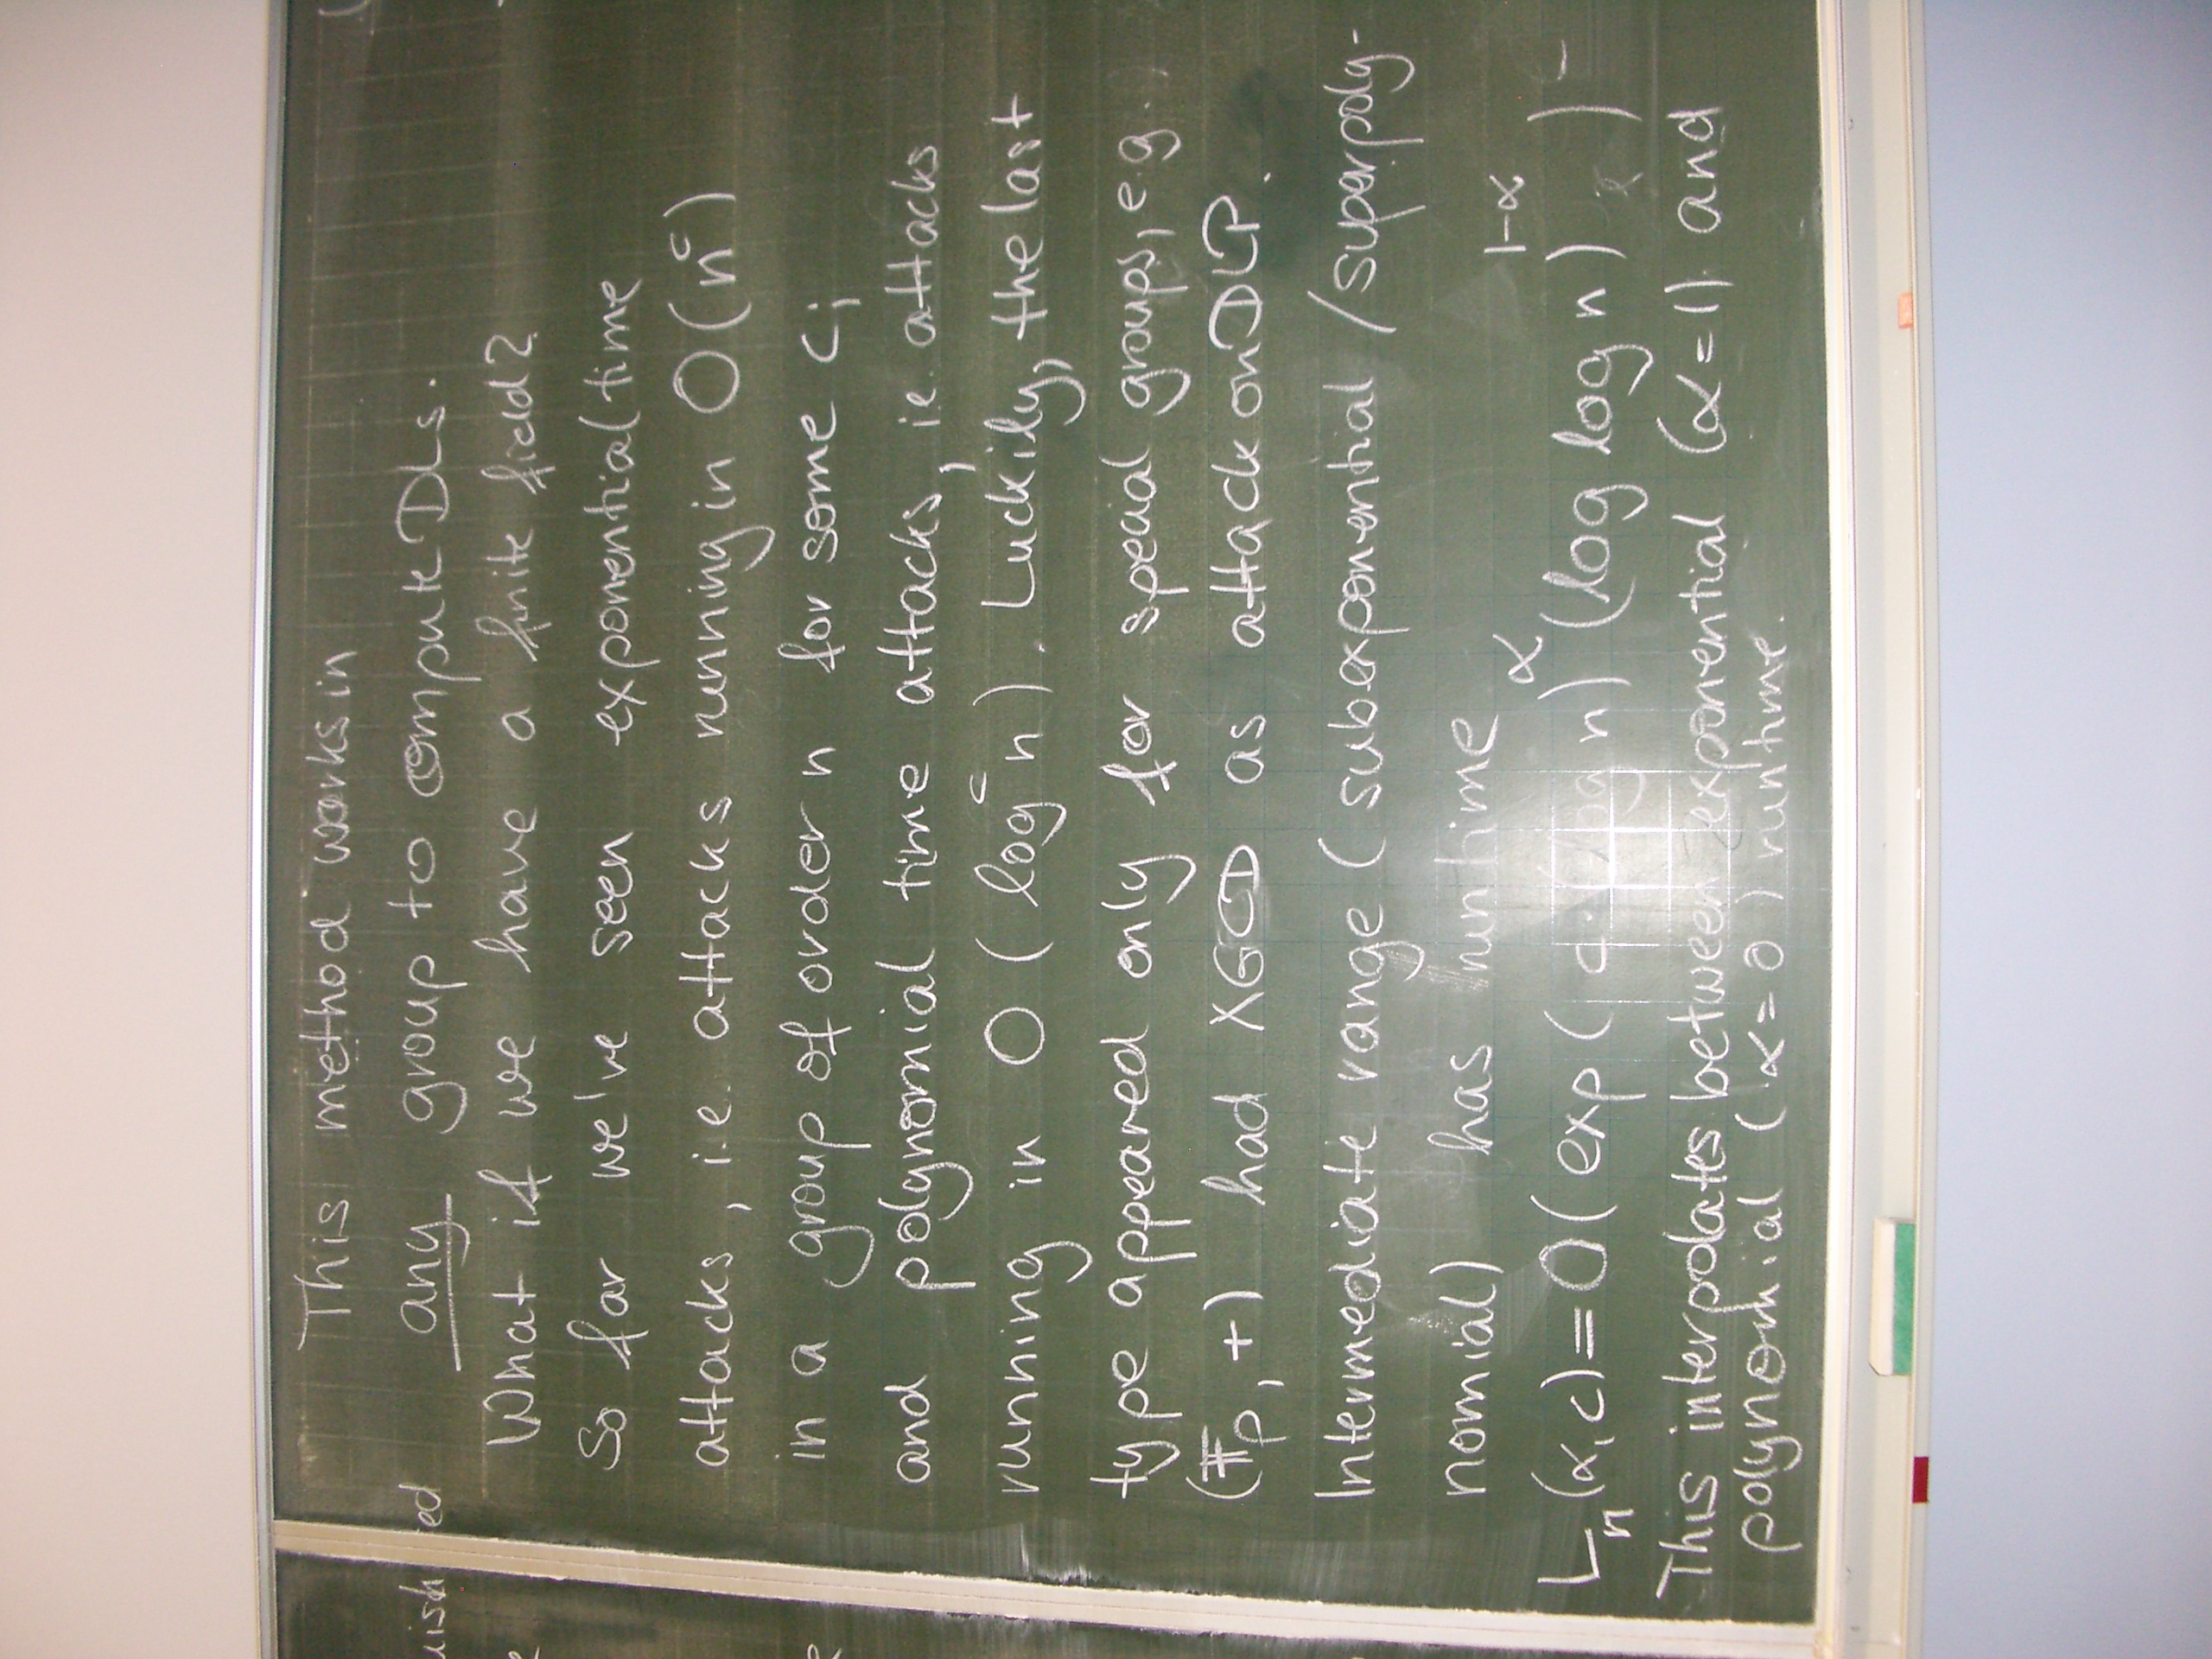 This method works in
any group to compute DLs.
What if we have a finite field?
So far we've seen exponential time
attacks, i.e. attacks running in O(n^c)
in a group of order n for some c;
and polynomial time attacks, ie. attacks
running in O(log^c n). Luckily, the last
type appeared only for special groups, e.g.
(𝔽_p, +) had XGCD as attack on DLP.
Intermediate range (subexponential / superpoly-
nomial) has runtime
L_n(α, c) = O(exp(c·(log n)^α (log log n)^{1-α})
This interpolates between exponential (α=1) and
polynomial (α=0) runtime.